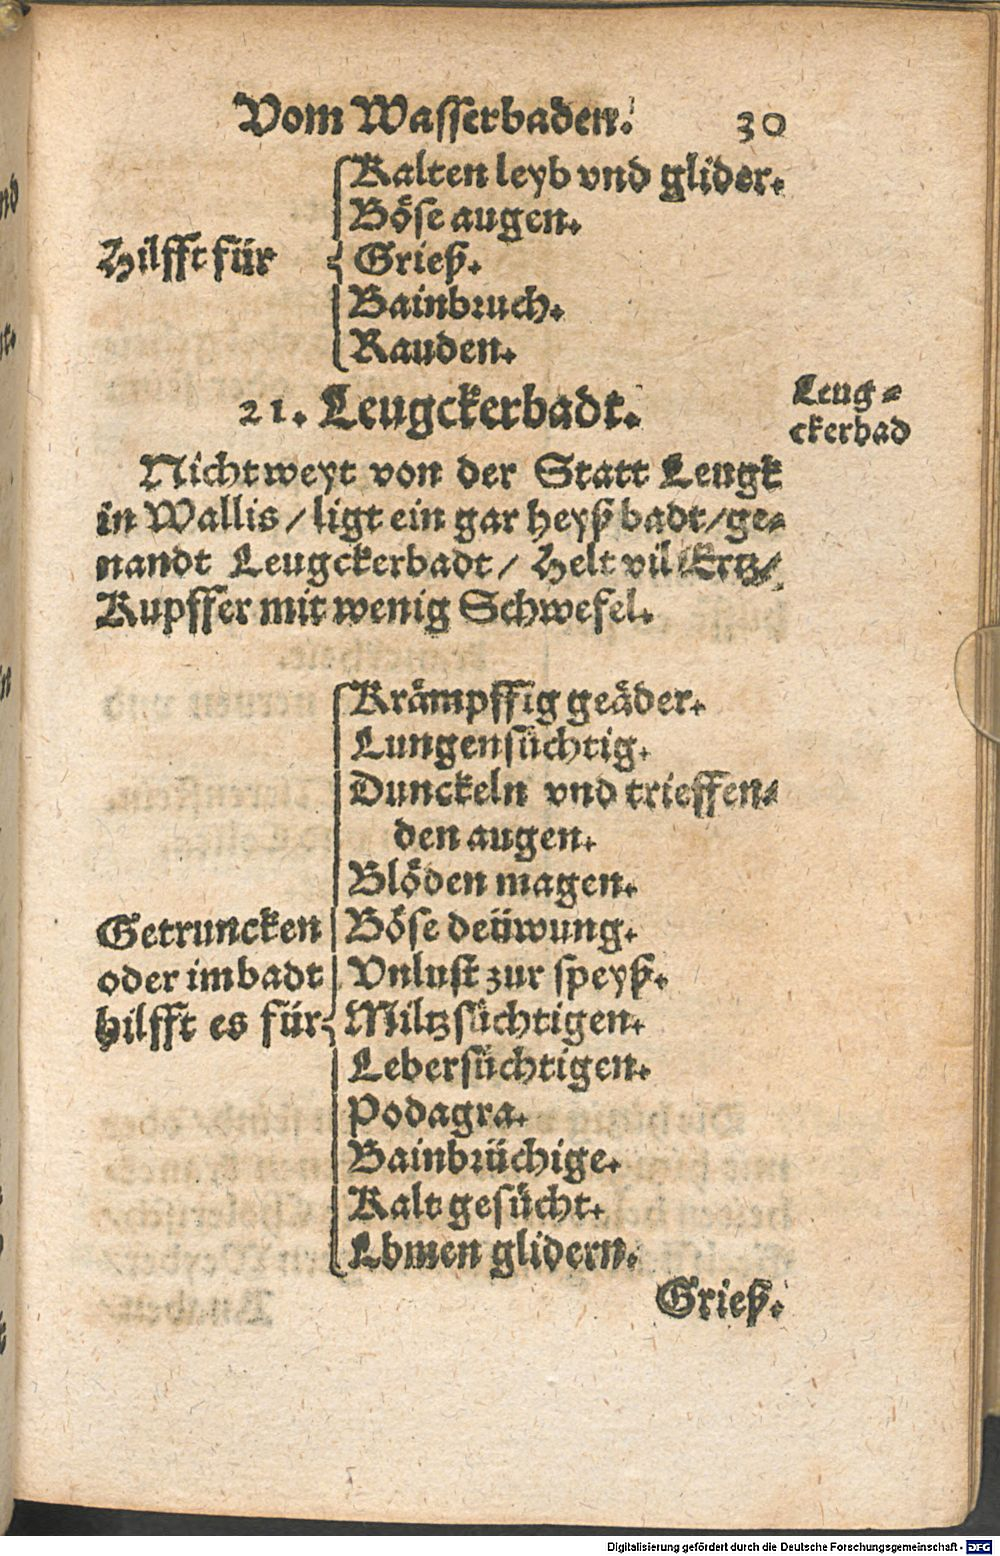 Vom Wasserbaden. 30
Kalten leyb vnd glider.
Böse augen.
Hilfft für
Grieß.
Bainbruch.
Rauden.
21. Leugckerbadt.
Leug-
ckerbad
Nicht weyt von der Statt Leugk
in Wallis / ligt ein gar heyß badt / ge-
nandt Leugckerbadt / Helt vil Ertz /
Kupffer mit wenig Schwefel.
Krämpffig geäder.
Lungensüchtig.
Dunckeln vnd trieffen-
den augen.
Blöden magen.
Getruncken
oder im badt
hilfft es für
Böse deüwung.
Vnlust zur speyß.
Miltzsüchtigen.
Lebersüchtigen.
Podagra.
Bainbrüchige.
Kalt gesücht.
Lbmen glidern.
Grieß.
Digitalisierung gefördert durch die Deutsche Forschungsgemeinschaft - DFG